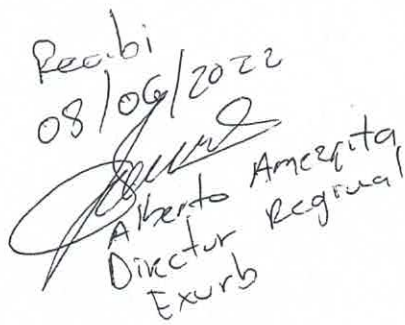 Recibi
08/06/2022
Alberto Amezqita
Director Regional
Exurb